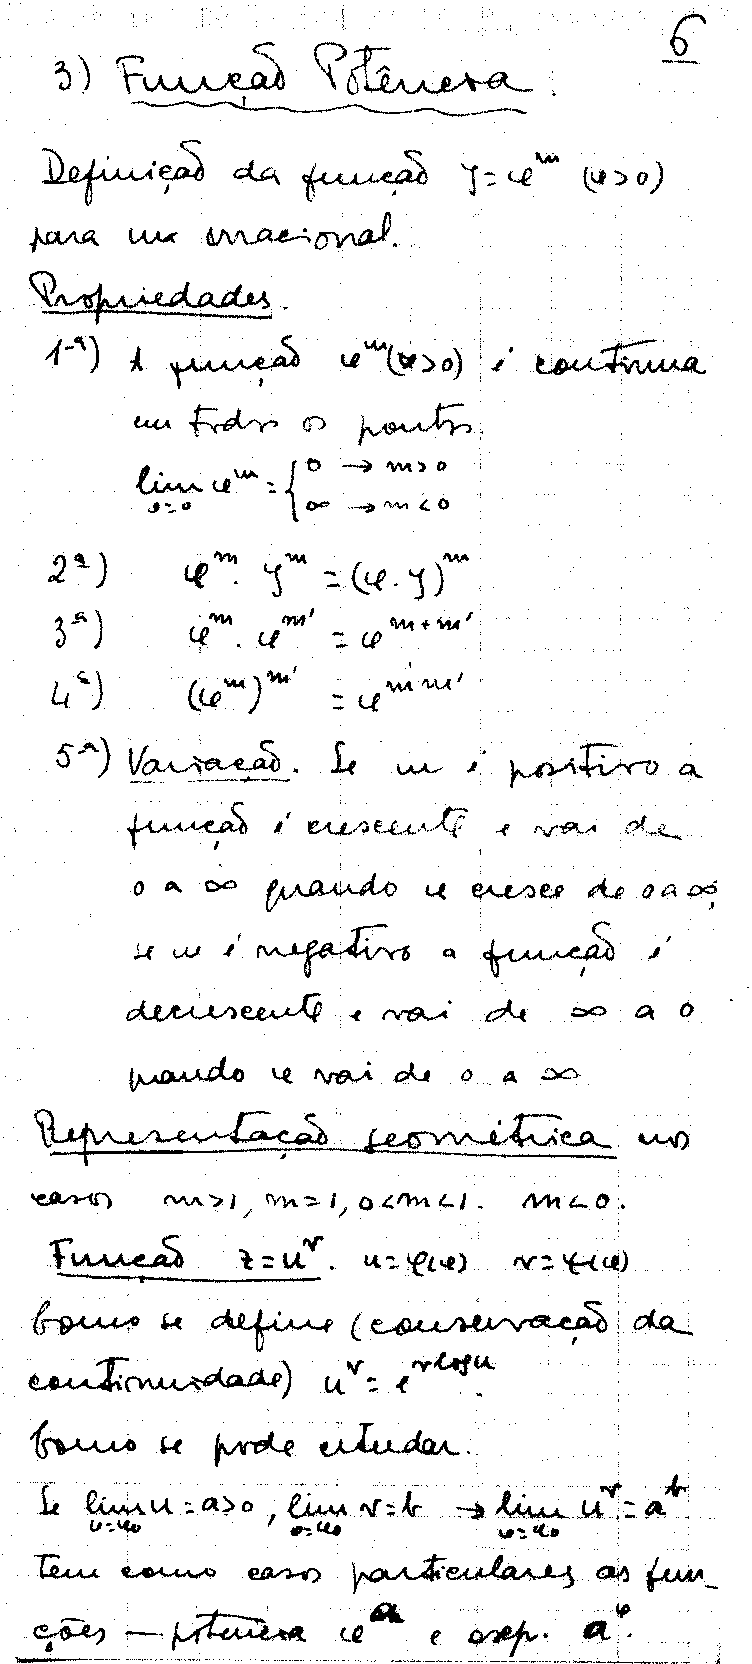 6
3) Função Potência.
Definição da função y=x^m (x>0)
para m irracional.
Propriedades.
1-ª) A função x^m (x>0) é contínua
em todos os pontos.
lim x^m = { 0 → m>0
x=0 { ∞ → m<0
2ª) x^m . y^m = (x.y)^m
3ª) x^m . x^m' = x^m+m'
4ª) (x^m)^m' = x^m m'
5ª) Variação. Se m é positivo a
função é crescente e vai de
0 a ∞ quando x cresce de 0 a ∞,
se m é negativo a função é
decrescente e vai de ∞ a 0
quando x vai de 0 a ∞
Representação geométrica nos
casos m>1, m=1, 0<m<1. m<0.
Função z=u^v. u=φ(x) v=ψ(x)
Como se define (conservação da
continuidade) u^v = e^v log u.
Como se pode estudar.
Se lim u = a>0, lim v=b → lim u^v = a^b
x=x₀ x=x₀ x=x₀
Tem como casos particulares as fun_
ções — potência x^a e exp. a^x.